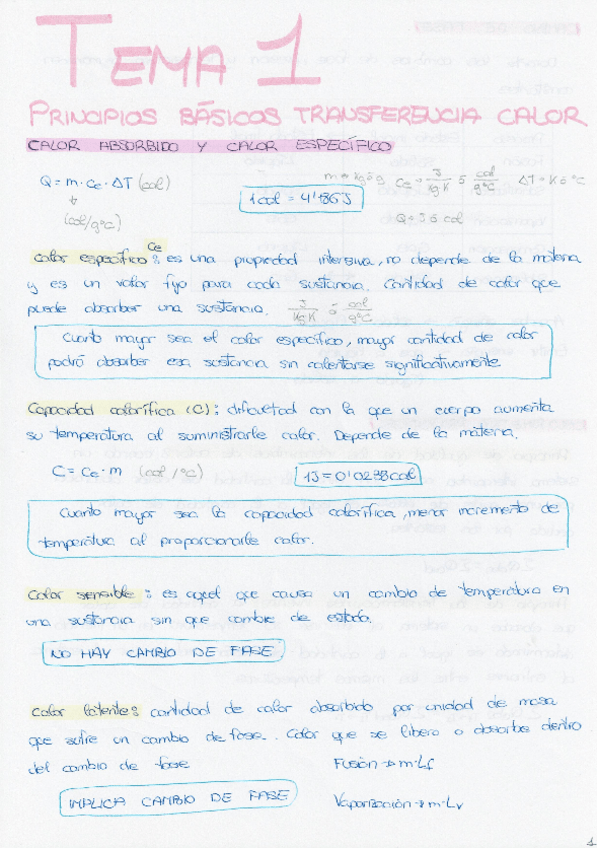 TEMA 1
PRINCIPIOS BÁSICOS TRANSFERENCIA CALOR
CALOR ABSORBIDO Y CALOR ESPECÍFICO
Q = m · Ce · ΔT (cal)
(cal/g°C)
1 cal = 4'186 J
m = kg ó g Ce = J/Kg K ó cal/g°C ΔT = K ó °C
Q = J ó cal
Calor específico Ce: es una propiedad intensiva, no depende de la materia
y es un valor fijo para cada sustancia. Cantidad de calor que
puede absorber una sustancia. J/Kg K ó cal/g°C
Cuanto mayor sea el calor específico, mayor cantidad de calor
podrá absorber esa sustancia sin calentarse significativamente.
Capacidad calorífica (C): dificultad con la que un cuerpo aumenta
su temperatura al suministrarle calor. Depende de la materia.
C = Ce · m (cal/°C)
1J = 0'0288 cal
Cuanto mayor sea la capacidad calorífica, menor incremento de
temperatura al proporcionarle calor.
Calor sensible: es aquel que causa un cambio de temperatura en
una sustancia sin que cambie de estado.
NO HAY CAMBIO DE FASE.
Calor latente: cantidad de calor absorbido por unidad de masa
que sufre un cambio de fase. Calor que se libera o absorbe dentro
del cambio de fase
Fusión → m·Lf
IMPLICA CAMBIO DE FASE
Vaporización → m·Lv
1